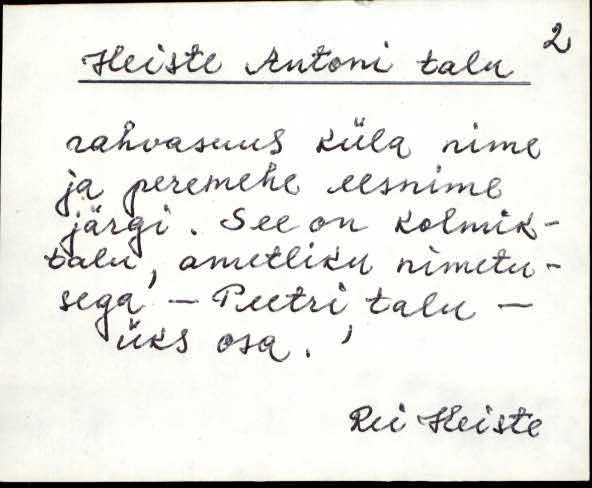 2
Heiste Antoni talu
rahvasuus küla nime
ja peremehe eesnime
järgi. See on kolmik-
talu, ametliku nimetu-
sega - Peetri talu -
üks osa.
Rei Heiste